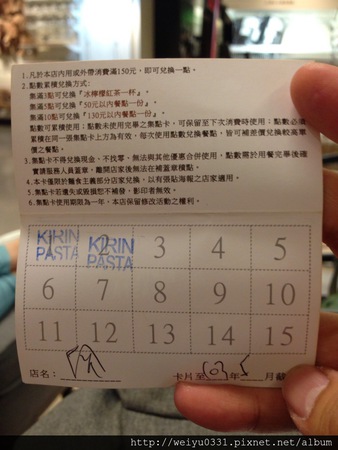 1. 凡於本店內用或外帶消費滿150元，即可兌換一點。
2. 點數累積兌換方式：
集滿3點可兌換『冰檸檬紅茶一杯』。
集滿5點可兌換『50元以內餐點一份』。
集滿10點可兌換『130元以內餐點一份』。
點數可累積使用；點數未使用完畢之集點卡，可保留至下次消費時使用；點數必須
累積在同一張集點卡上方為有效。每次使用點數兌換餐點，皆可補差價兌換較高單
價之餐點。
3. 集點卡不得兌換現金、不找零、無法與其他優惠合併使用，點數需於用餐完畢後確
實請服務人員蓋章，離開店家後無法在補蓋章積點。
4. 本卡僅限於麵食主義部分店家兌換，以有張貼海報之店家適用。
5. 集點卡若遺失或毀損恕不補發，影印者無效。
6. 集點卡使用期限為一年。本店保留修改活動之權利。
1 2 3 4 5
KIRIN PASTA
KIRIN PASTA
6 7 8 9 10
11 12 13 14 15
店名：
卡片至 年 月
http://weiyu0331.pixnet.net/album